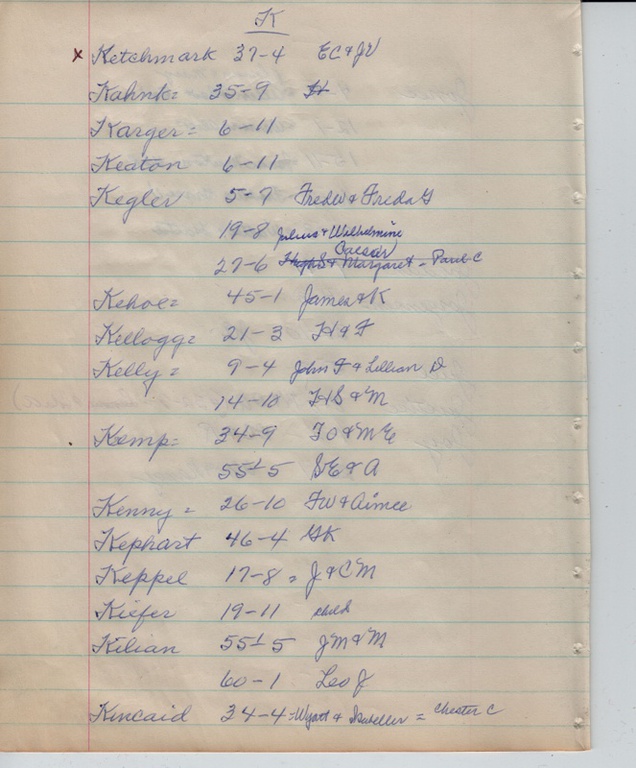 K
x Ketchmark 37-4 EC & JV
Kahnk = 35-9 H
Karger = 6-11
Keaton 6-11
Kegler 5-7 Fred W & Freda G
19-8 Julius & Wilhelmine
Caesar
27-6 Hugh S & Margaret - Paul C
Kehoe = 45-1 James & K
Kellogg = 21-3 H & F
Kelly = 9-4 John F & Lillian D
14-10 HS & M
Kemp = 34-9 FO & ME
55-5 SE & A
Kenny = 26-10 FW & Aimee
Kephart 46-4 GK
Keppel 17-8 = J & CM
Kiefer 19-11 child
Kilian 55-5 JM & M
60-1 Leo J
Kincaid 34-4 = Wyatt & = Chester C